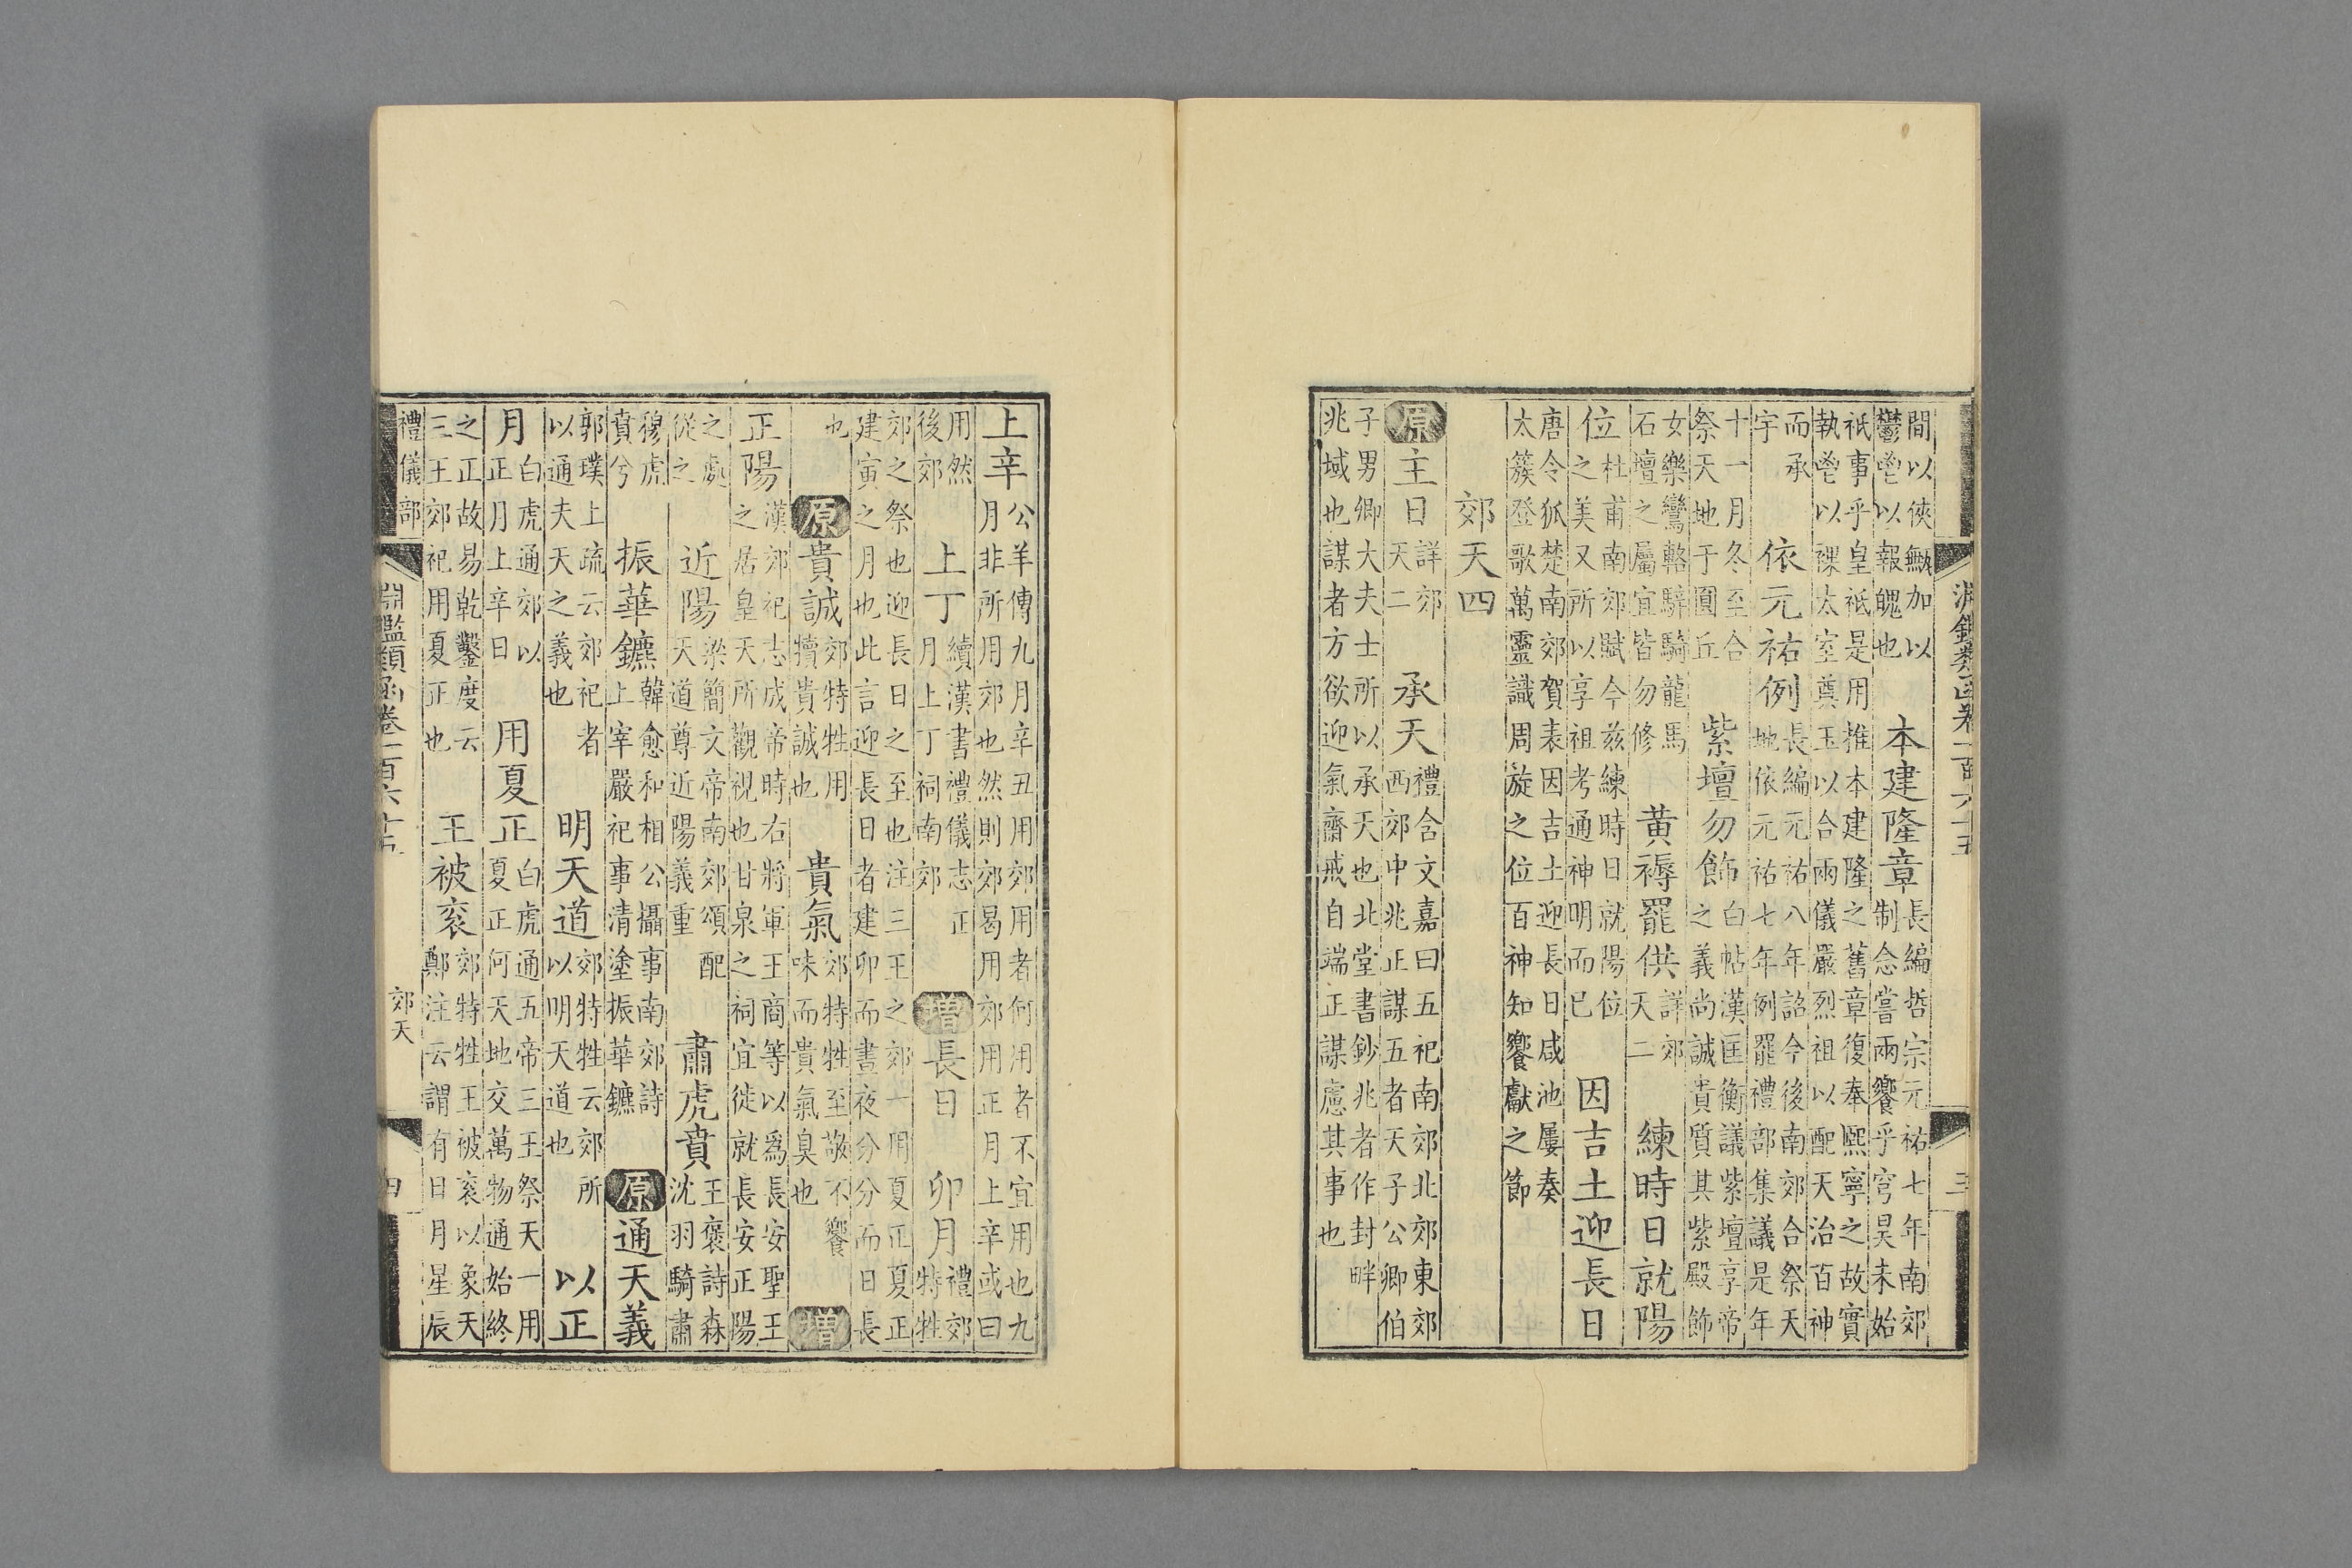 淵鑑類函卷一百六十五 三
間以俠𩇕加以
鬱鬯以報魄也
本建隆章
長編哲宗元祐七年南郊
制念嘗兩饗乎穹昊未始
祇事乎皇祇是用推本建隆之舊章復奉熙寧之故實
執鬯以祼太室奠玉以合兩儀嚴烈祖以配天治百神
而承
宇
依元祐例
長編元祐八年詔今後南郊合祭天
地依元祐七年例罷禮部集議是年
十一月冬至合
祭天地于圓丘
紫壇勿飾
白帖漢匡衡議紫壇享帝
之義尚誠貴質其紫殿飾
女樂鸞輅騂騎龍馬
石壇之屬宜皆勿修
黃褥罷供
詳郊
天二
練時日就陽
位
杜甫南郊賦今茲練時日就陽位
之美又所以享祖考通神明而已
因吉土迎長日
唐令狐楚南郊賀表因吉土迎長日咸池屢奏
太簇登歌萬靈識周旋之位百神知饗獻之節
郊天四
原主日
詳郊
天二
承天
禮含文嘉曰五祀南郊北郊東郊
西郊中兆正謀五者天子公卿伯
子男卿大夫士所以承天也北堂書鈔兆者作封畔
兆域也謀者方欲迎氣齋戒自端正謀慮其事也
上辛
公羊傳九月辛丑用郊用者何用者不宜用也九
月非所用郊也然則郊曷用郊用正月上辛或曰
用然
後郊
上丁
續漢書禮儀志正
月上丁祠南郊
增長日
卯月
禮郊
特牲
郊之祭也迎長日之至也注三王之郊一用夏正夏正
建寅之月也此言迎長日者建卯而晝夜分分而日長
也
原貴誠
郊特牲用
犢貴誠也
貴氣
郊特牲至敬不饗
味而貴氣臭也
增
正陽
漢郊祀志成帝時右將軍王商等以爲長安聖王
之居皇天所觀視也甘泉之祠宜徙就長安正陽
之處
從之
近陽
梁簡文帝南郊頌配
天道尊近陽義重
肅虎賁
王褒詩森
沈羽騎肅
穆虎
賁兮
振華鑣
韓愈和相公攝事南郊詩
上宰嚴祀事清塗振華鑣
原通天義
郭璞上疏云郊祀者
以通夫天之義也
明天道
郊特牲云郊所
以明天道也
以正
月
白虎通郊以
正月上辛日
用夏正
白虎通五帝三王祭天一用
夏正何天地交萬物通始終
之正故易乾鑿度云
三王郊祀用夏正也
王被衮
郊特牲王被衮以象天
鄭注云謂有日月星辰
禮儀部 淵鑑類函卷一百六十五 郊天 四